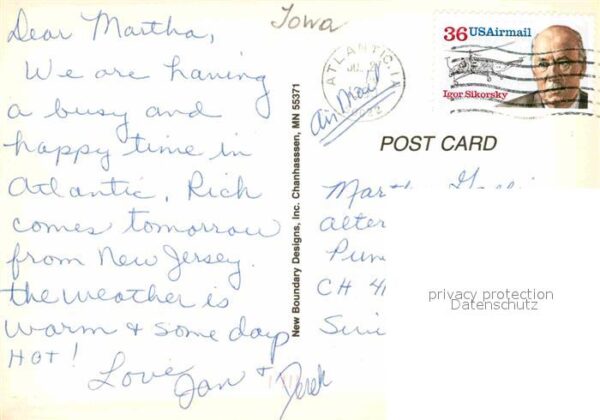 Iowa
Dear Martha,
We are having
a busy and
happy time in
Atlantic, Rich
comes tomorrow
from New Jersey.
the weather is
warm & some days
HOT!
Love,
Jan &
Derek
New Boundary Designs, Inc. Chanhasssen, MN 55371
ATLANTIC, IA
Air Mail
36 USAirmail
Igor Sikorsky
POST CARD
CH
privacy protection
Datenschutz